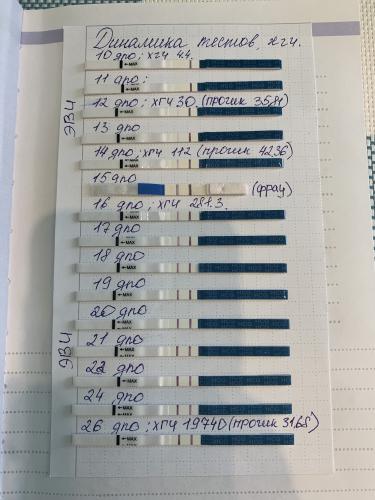 Динамика тестов, хгч.
10 дпо; хгч 4.4.
11 дпо;
12 дпо; хгч 30 (прогик 35,81)
13 дпо
14 дпо; хгч 112 (прогик 42.36)
15 дпо (фрау)
16 дпо; хгч 281.3.
17 дпо
18 дпо
19 дпо
20 дпо
21 дпо
22 дпо
24 дпо
26 дпо; хгч 19740 (прогик 31.68)
ЭВЧ
ЭВЧ
MAX
MAX
MAX
MAX
MAX
MAX
MAX
MAX
MAX
MAX
MAX
MAX
MAX
MAX